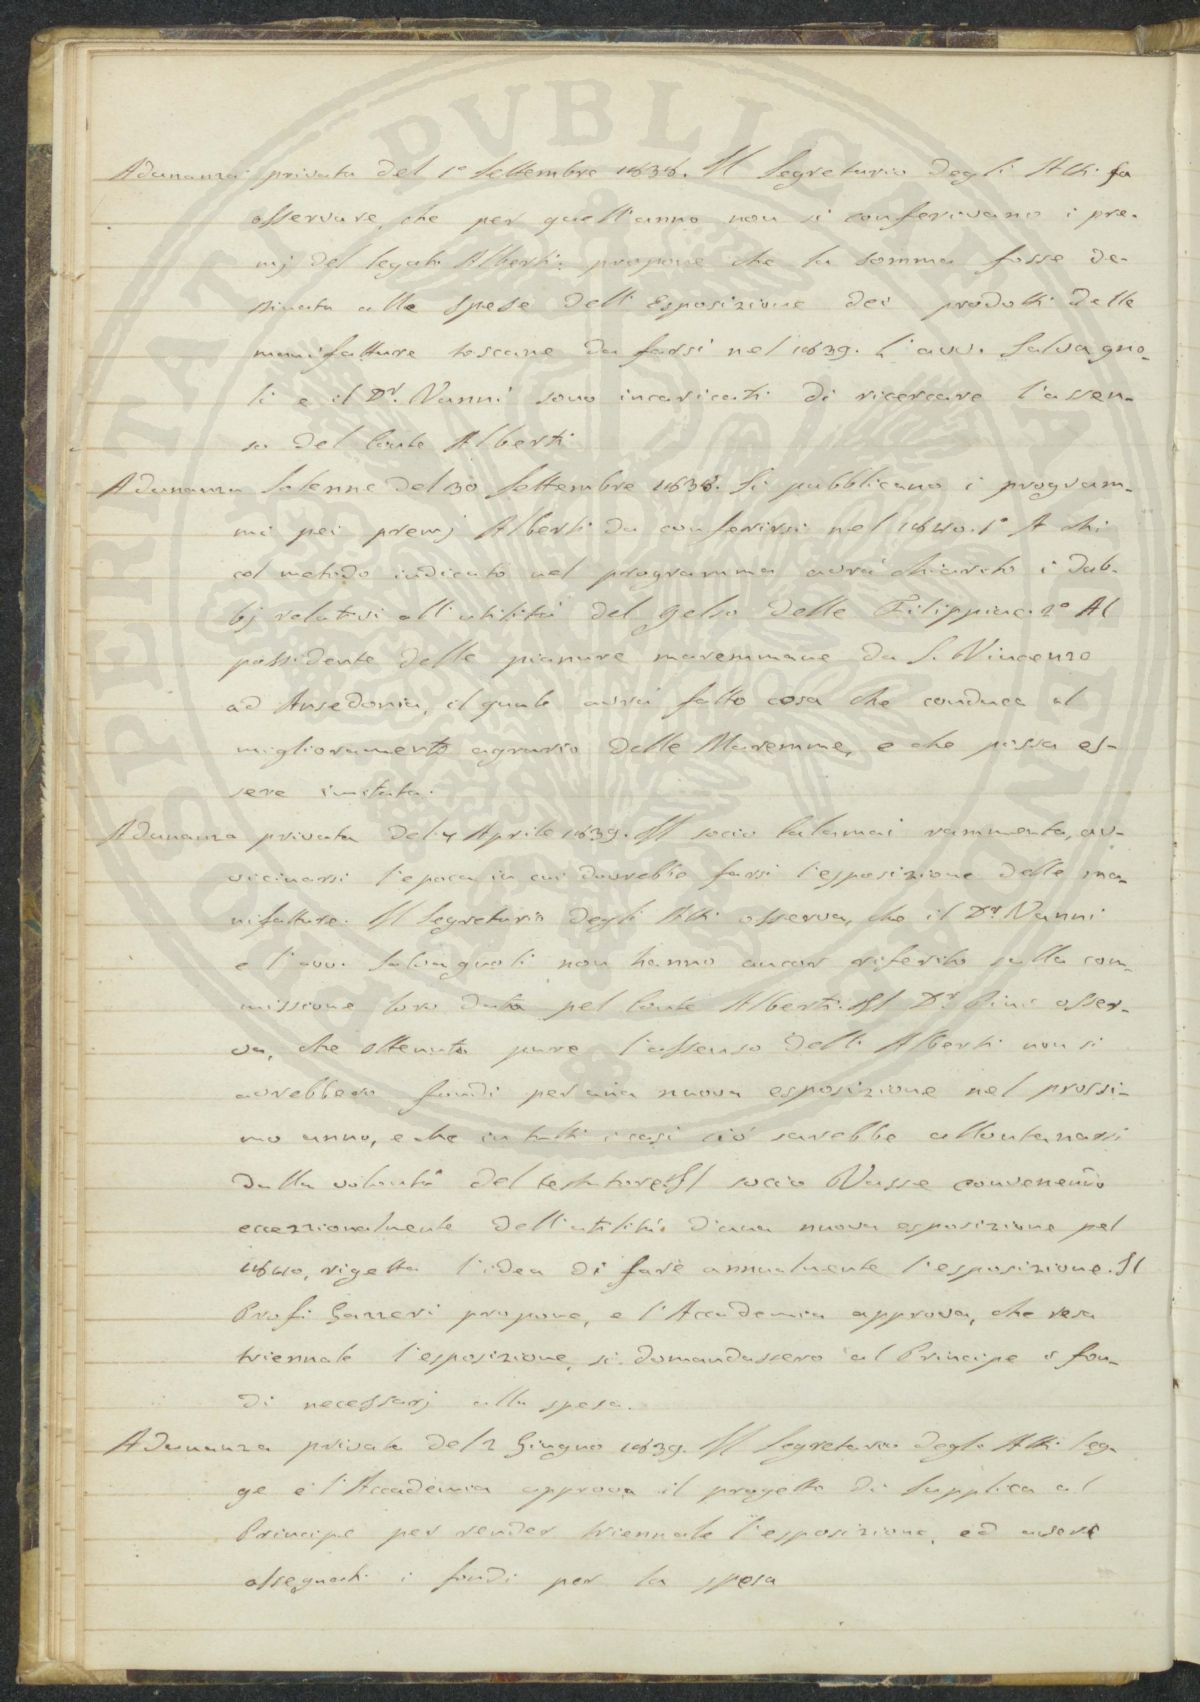 Adunanza privata del 1° Settembre 1838. Il Segretario degli Atti fa
osservare, che per quell'anno non si conferivano i pre-
mj del legato Alberti: propone che la somma fosse de-
stinata alle spese dell'Esposizione dei prodotti delle
manifatture toscane da farsi nel 1839. L'avv. Salvagno-
li e il Dr. Vanni sono incaricati di ricercare l'assen-
so del Conte Alberti
Adunanza Solenne del 30 Settembre 1838. Si pubblicano i program-
mi pei premj Alberti da conferirsi nel 1840. 1° A chi
col metodo indicato nel programma avrà chiarito i dub-
bj relativi all'utilità del gelso delle Filippine 2° Al
possidente delle pianure maremmane da S. Vincenzo
ad Ansedonia, il quale avrà fatto cosa che conduca al
miglioramento agrario delle Maremme, e che possa es-
sere imitata.
Adunanza privata del 7 Aprile 1839. Il socio Calamai rammenta, av-
vicinarsi l'epoca in cui dovrebbe farsi l'esposizione delle ma-
nifatture. Il Segretario degli Atti osserva, che il Dr. Vanni
e l'avv. Salvagnoli non hanno ancor riferito sulla com-
missione loro data pel Conte Alberti. Il Dr. Pini osser-
va, che ottenuto pure l'assenso dell'Alberti non si
avrebbero fondi per una nuova esposizione nel prossi-
mo anno, e che in tutti i casi ciò sarebbe allontanarsi
dalla volontà del testatore. Il socio Vasse convenendo
eccezionalmente dell'utilità d'una nuova esposizione pel
1840, rigetta l'idea di fare annualmente l'esposizione. Il
Prof. Gazzeri propone, e l'Accademia approva, che resa
triennale l'esposizione, si domandassero al Principe i fon-
di necessarj alla spesa.
Adunanza privata del 2 Giugno 1839. Il Segretario degli Atti leg-
ge e l'Accademia approva il progetto di supplica al
Principe per render triennale l'esposizione, ed avere
assegnati i fondi per la spesa
PROSPERITATI PVBLICAE AVGENDAE